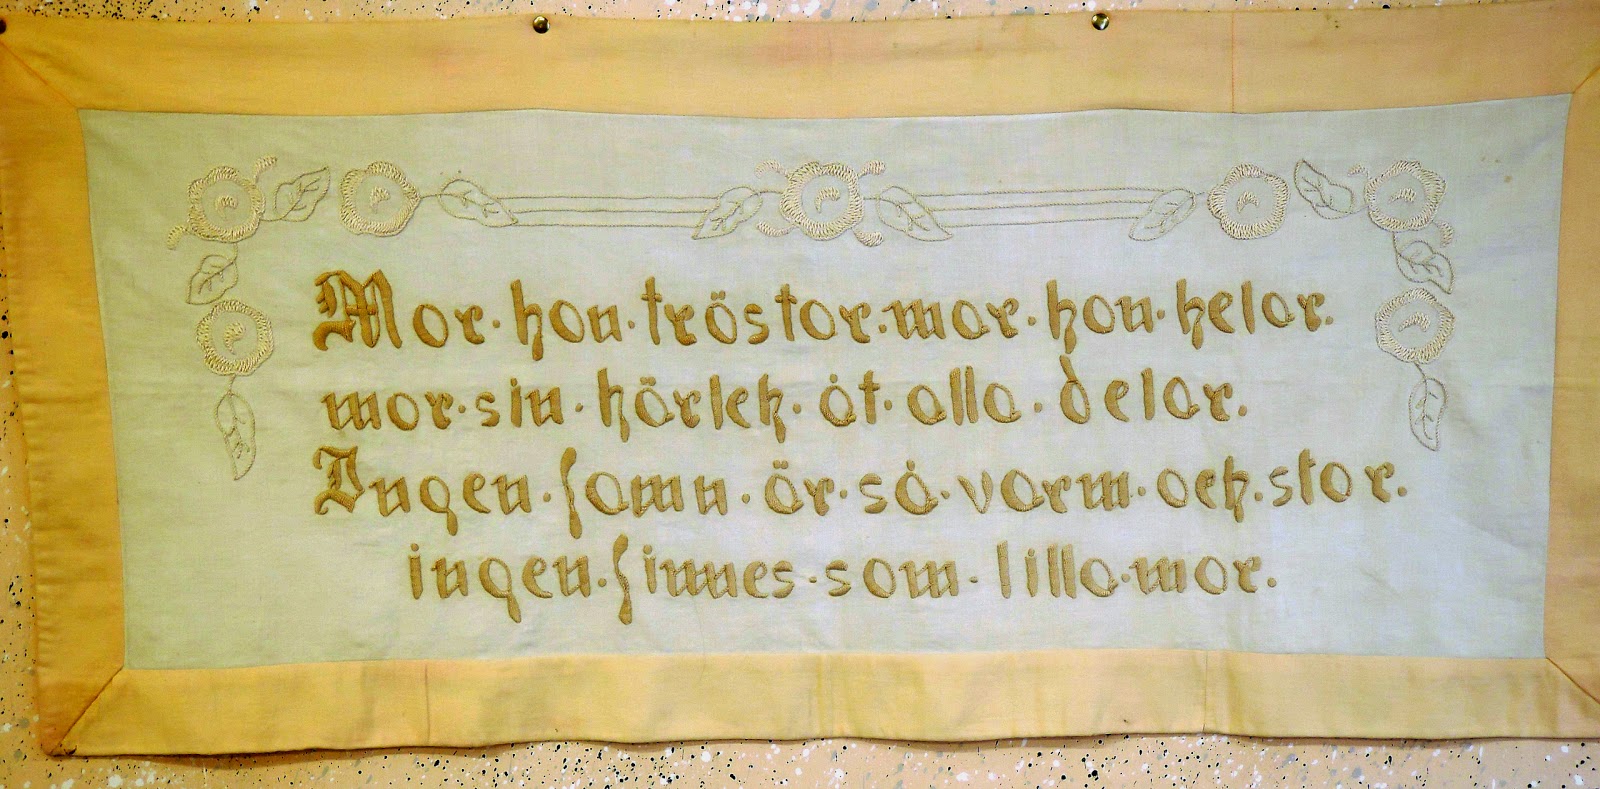 Mor·hon·tröstar·mor·hon·helar.
mor·sin·kärlek·åt·alla·delar.
Ingen·famn·är·så·varm·och·stor.
ingen·finnes·som·lilla·mor.